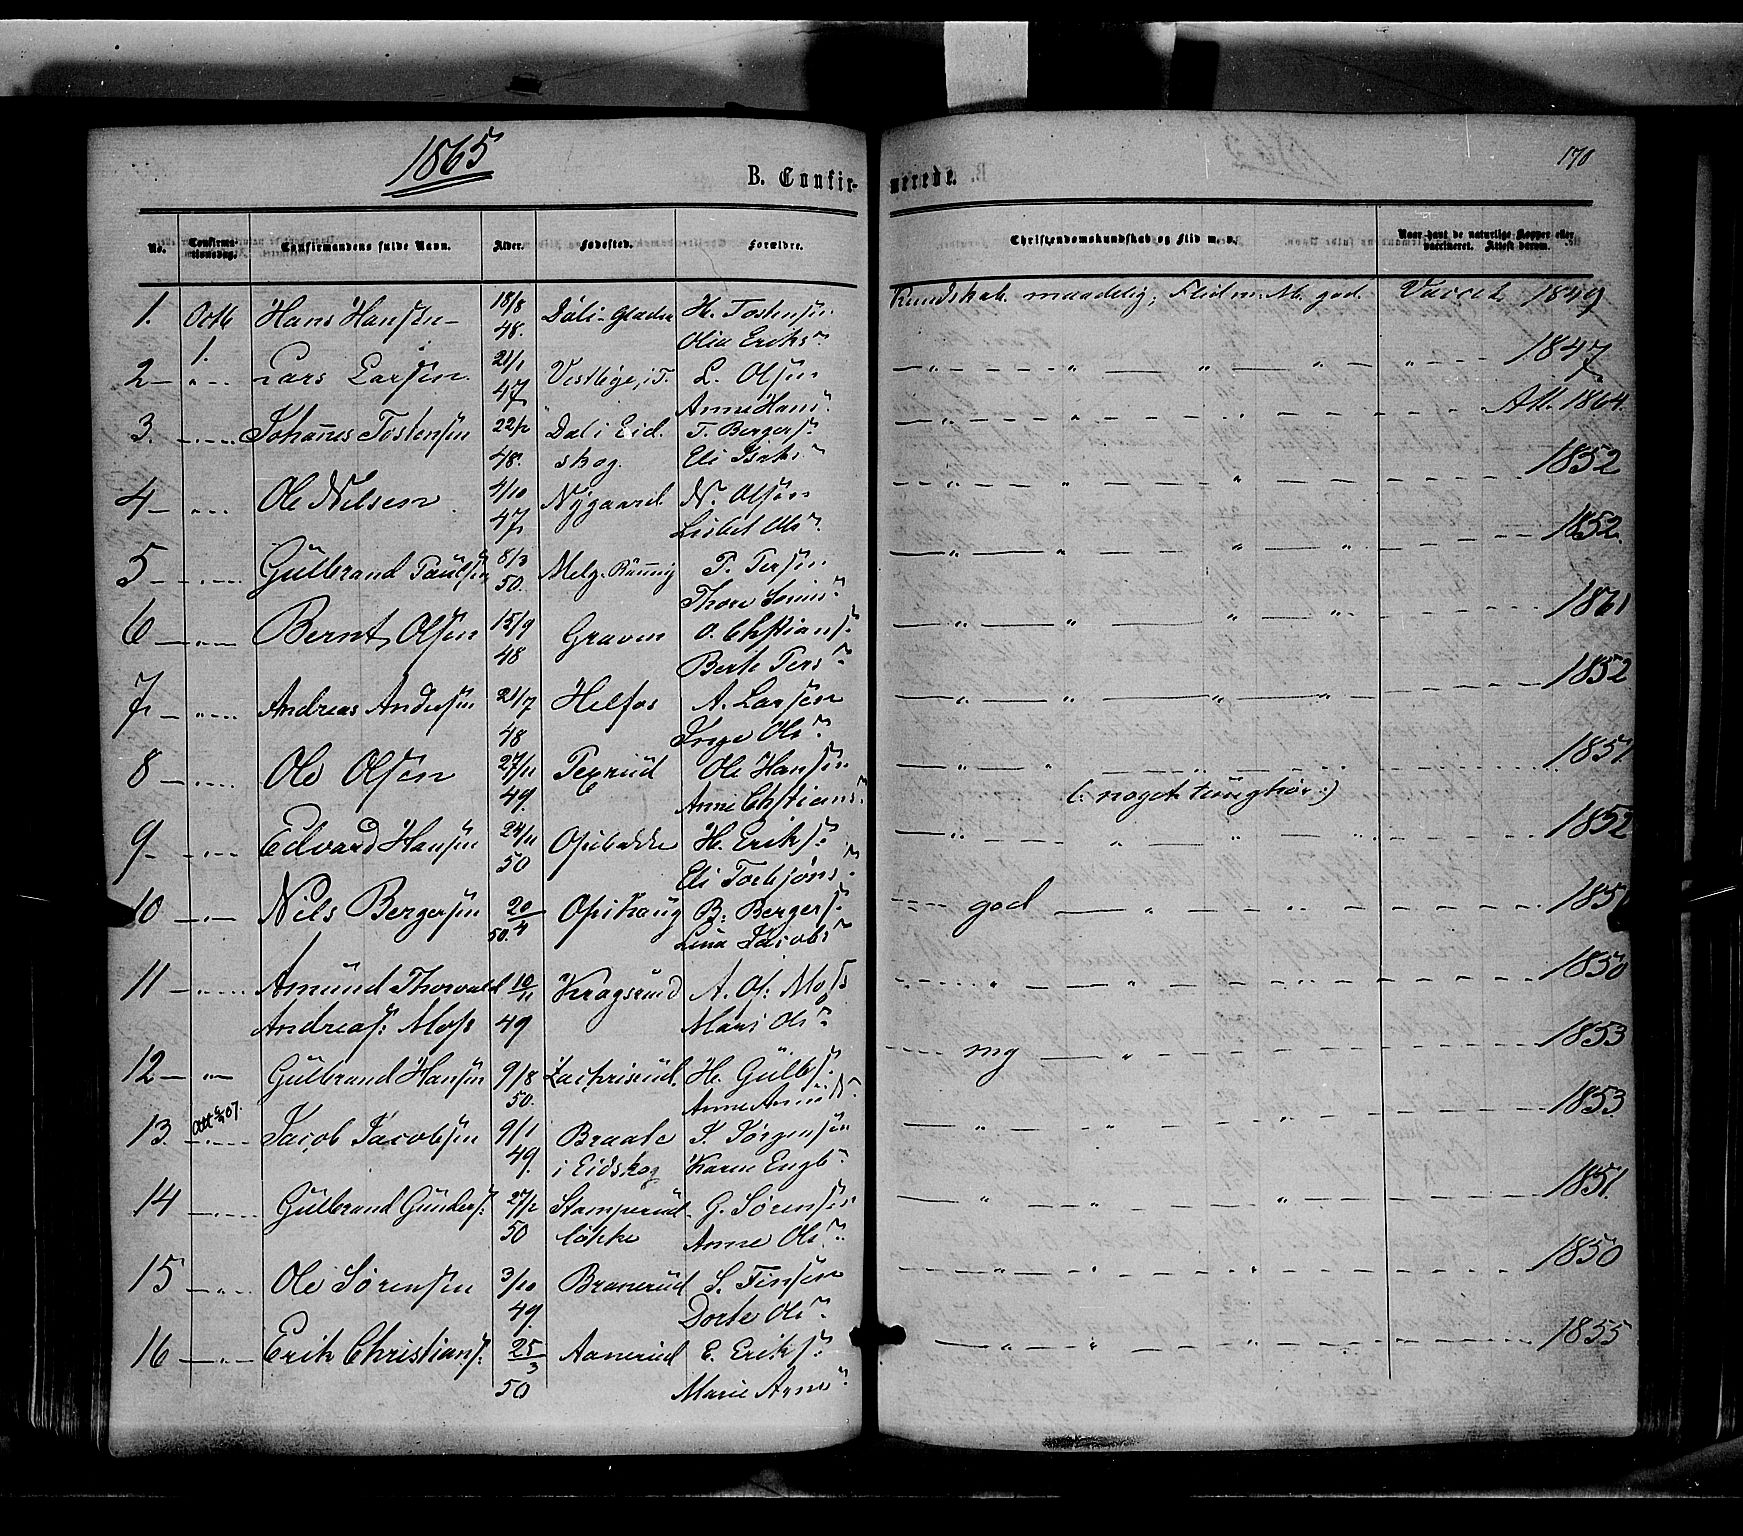 1865
170
B. Confirmerede.
No. Confirmationsdag. Confirmandens fulde Navn. Alder. Fødested. Forældre. Christendomskundskab og Flid m. v. Naar havt de naturlige Kopper eller vaccineret. Attest derom.
1. Octb Hans Hansen 18/8 Dal i H. Tostensen Kundskab maadelig, Flid m. M. god. Vaccet 1849
1. 48. Olia Eriksr
2 " Lars Larsen. 21/1 i T. L. Olsen " " " " 1847
47 Anne Hans.
3. " Johannes Tostensen 22/2 Dal i Eid. T. Bergers: " " Att. 1864.
48. skog. Eli Isaks
4 " Ole Nilsen 4/10 Nygaard N. Olsen " " 1852
47 Lisbet Ols
5 " Gulbrand Paulsen 8/3 P. Persen " " " " 1852.
50. Thore
6 " Bernt Olsen 15/9 Graven O. Chstians: " " " " 1861
48 Berte Pers
7 " Andreas Andersen 21/7 Helfos A. Larsen " " " " 1852
48 Inge Ols
8 " Ole Olsen 27/11 Pexrud Ole Hansen " " " " 1851
49. Anne Chstians: (: noget tunghør:)
9 " Edvard Hansen 24/11 Opibakke H. Eriks: " " " " 1852
50 Eli Torbjøns.
10 " Nils Bergersen 20/4 Opihaug B. Bergers: god " " 1851
50. Lina Jacobs
11 " Amund Thorvald 10/11 Krogsrud A. Ol: Moss " " " 1850
Andreas: Moss 49 Mari Ols
12 " Gulbrand Hansen 9/8 Zachrisrud. H. Gulbs: mg " 1853
50. Anne Amunds.
13. " Jacob Jacobsen 9/1 Braate J. Jørgensen " " " 1853
49. i Eidskog Karen Engb
14 " Gulbrand Gunders: 27/2 Stamperud G. Sørensen " " " 1851.
50 løkke Anne Ols
15 " Ole Sørensen 3/10 Branerud S. Finsen " " 1850
49. Dorte Ols
16 " Erik Christians: 25/3 Aanerud E. Eriks: " " " 1855
50 Marie Arne